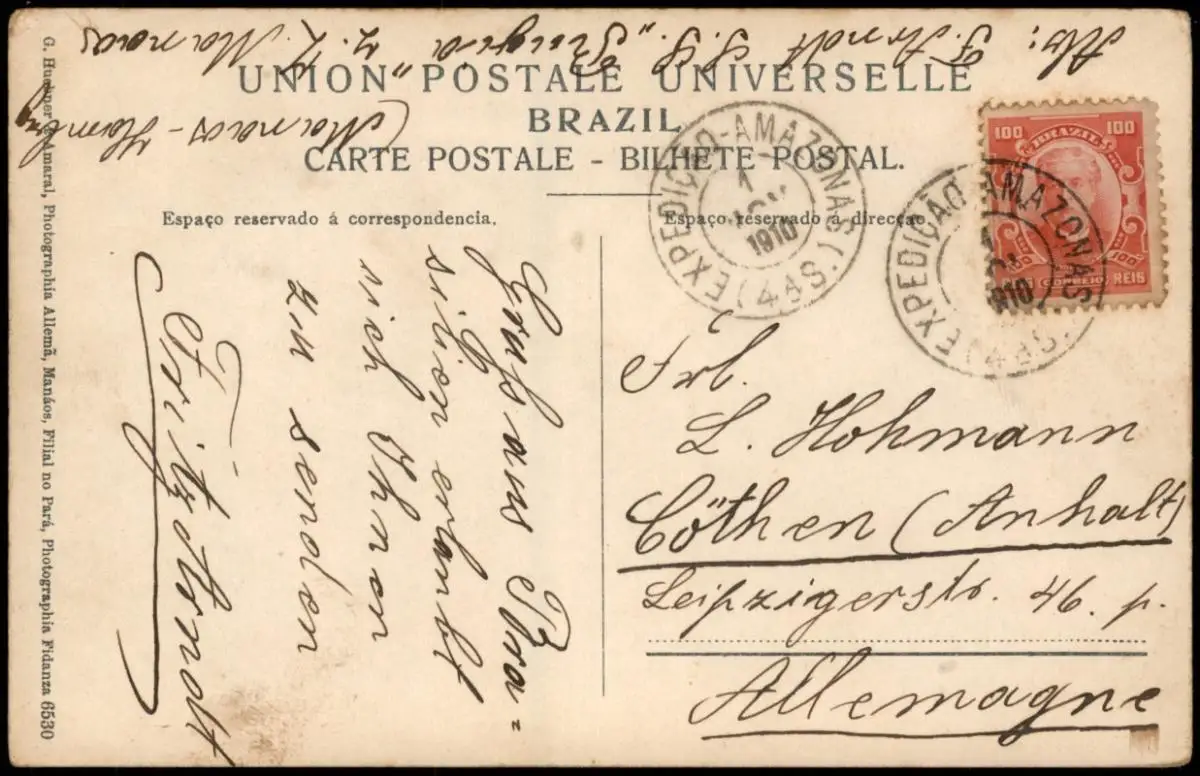 Abs: F. Arndt S. S. „Rugia" z. Z. Manaos
(Manaos - Hamburg
UNION POSTALE UNIVERSELLE
BRAZIL
CARTE POSTALE - BILHETE POSTAL.
Espaço reservado á correspondencia.
Espaço reservado á direcção.
EXPEDIÇÃO-AMAZONAS
1
1910
(4ªS.)
100 BRAZIL 100
100 100
CORREIO
REIS
EXPEDIÇÃO AMAZONAS
1
1910
(4ªS.)
Gruß aus Bra-
silien erlaubt
sich Ihnen
zu senden
Fritz Arndt
Frl.
L. Hohmann
Cöthen (Anhalt)
Leipzigerstr. 46. p.
Allemagne
G. Huebner & Amaral, Photographia Allemã, Manáos, Filial no Pará, Photographia Fidanza 6530